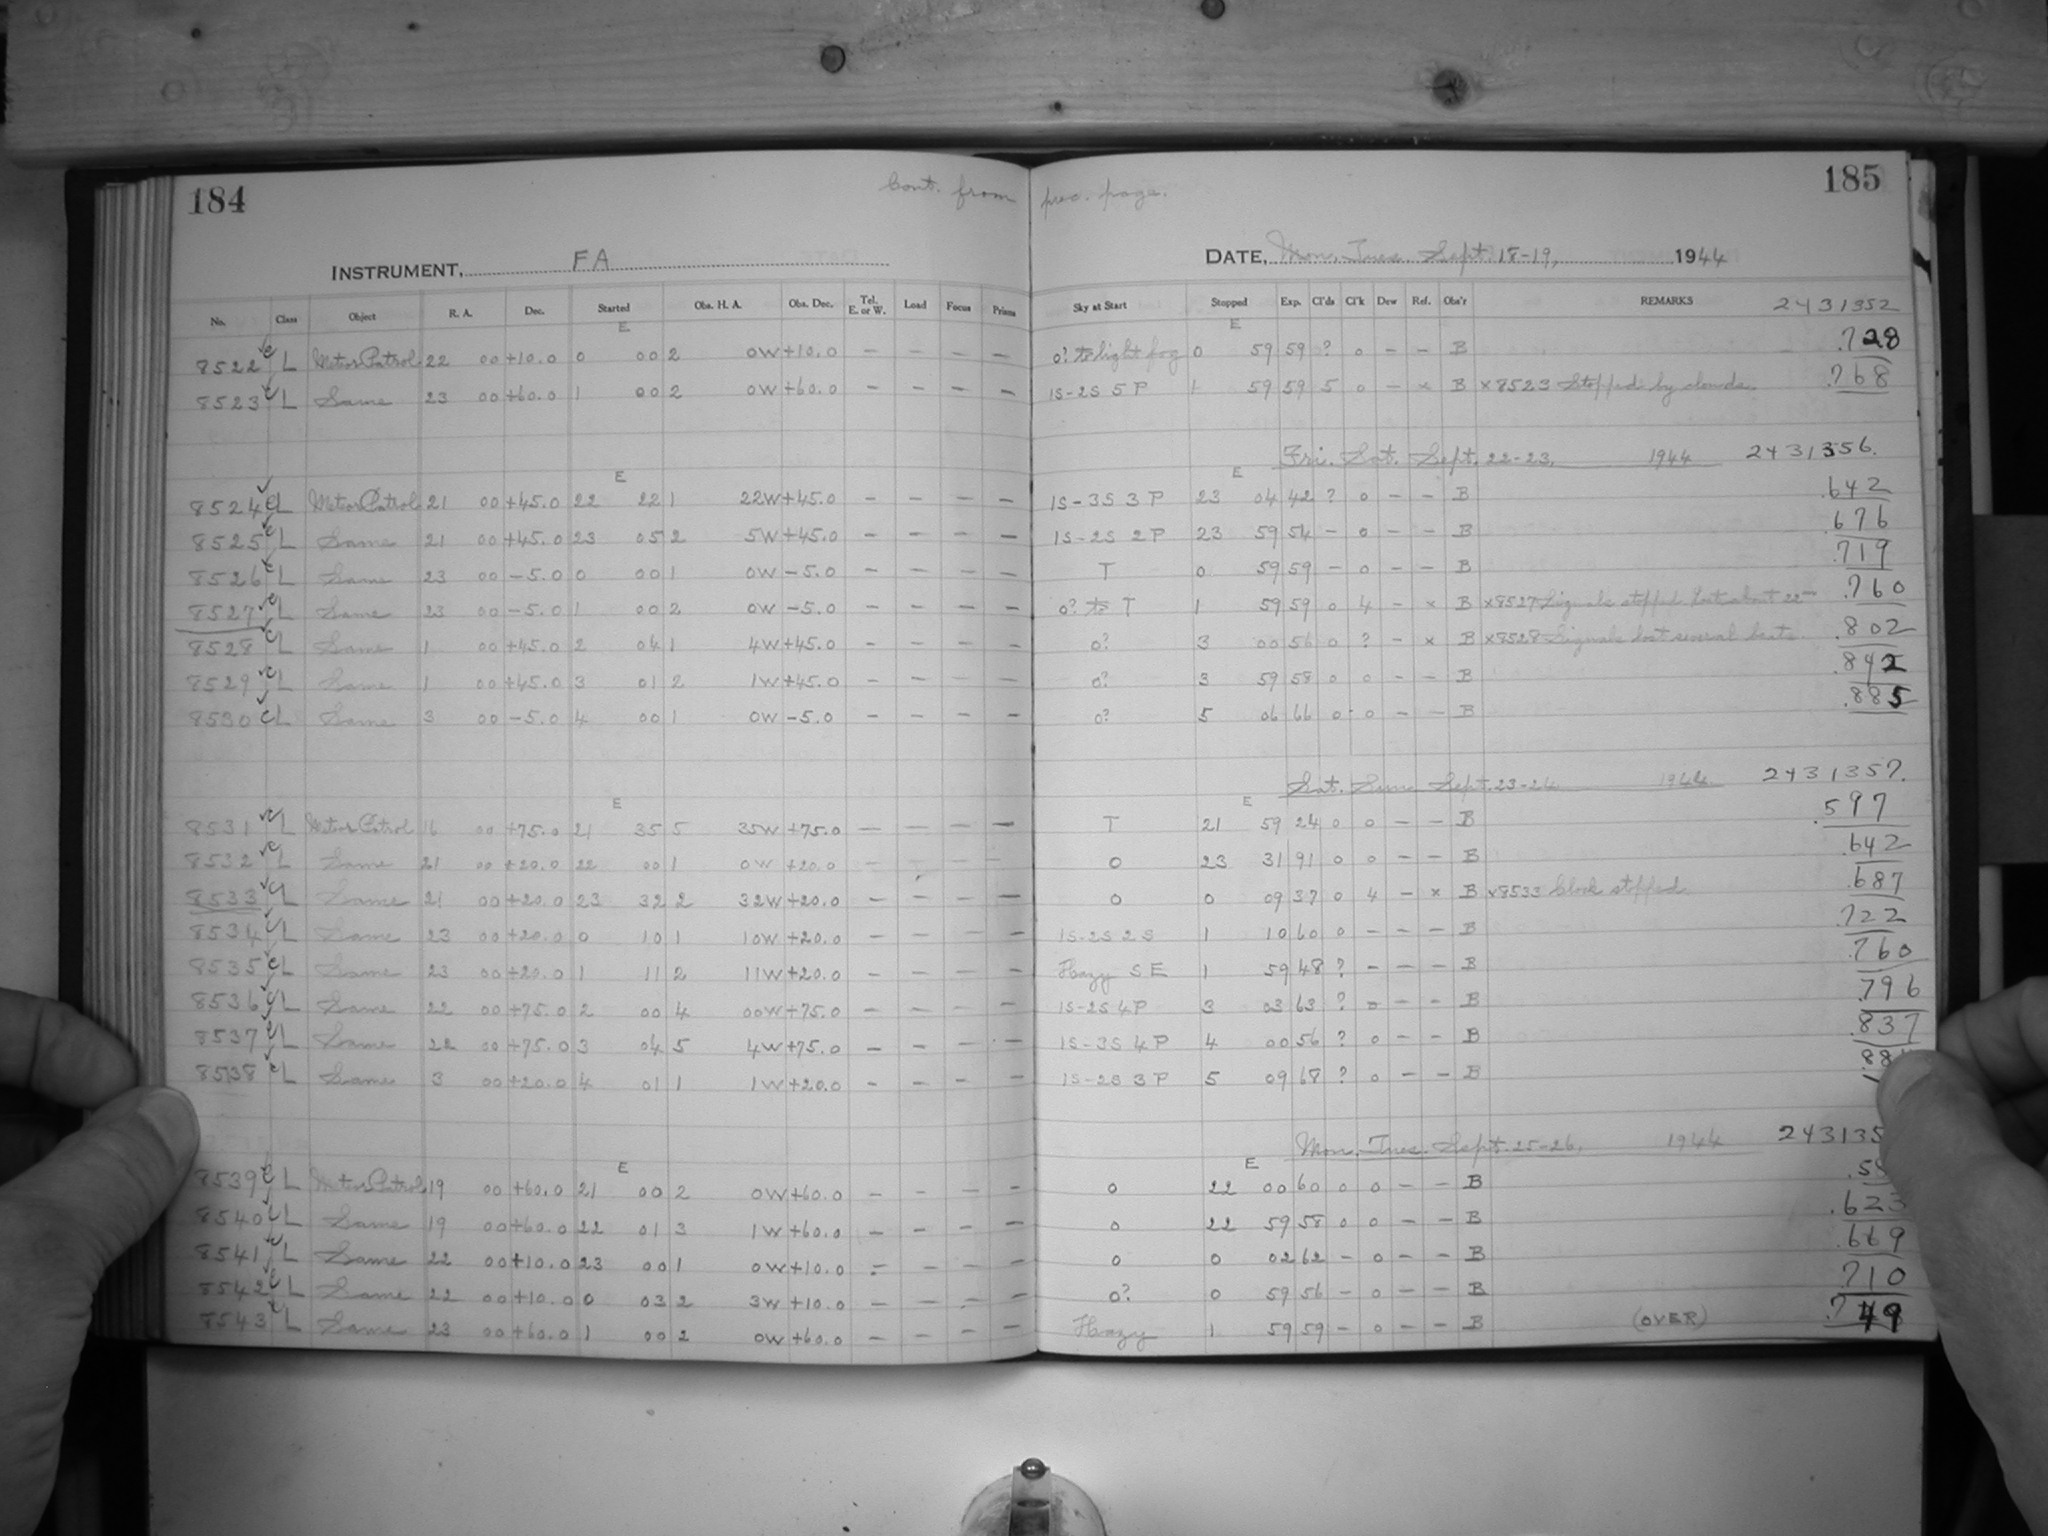 184 Cont. from prec. page. 185
INSTRUMENT, FA DATE, Mon. Tues. Sept. 18-19, 1944
No. Class Object R. A. Dec. Started Obs. H. A. Obs. Dec. Tel. E. or W. Load Focus Prisms Sky at Start Stopped Exp. Cl'ds Cl'k Dew Ref. Obs'r REMARKS 2431352
E E
8522 c L Meteor Patrol 22 00 +10.0 0 00 2 0W +10.0 - - - - 0? to light fog 0 59 59 ? 0 - - B .728
8523 c L Same 23 00 +60.0 1 00 2 0W +60.0 - - - - 1S-2S 5P 1 59 59 5 0 - x B x8523 Stopped by clouds. .768
Fri. Sat. Sept. 22-23, 1944 2431356.
E E
8524 c L Meteor Patrol 21 00 +45.0 22 22 1 22W +45.0 - - - - 1S-3S 3P 23 04 42 ? 0 - - B .642
8525 c L Same 21 00 +45.0 23 05 2 5W +45.0 - - - - 1S-2S 2P 23 59 54 - 0 - - B .676
8526 c L Same 23 00 -5.0 0 00 1 0W -5.0 - - - - T 0 59 59 - 0 - - B .719
8527 c L Same 23 00 -5.0 1 00 2 0W -5.0 - - - - 0? to T 1 59 59 0 4 - x B x8527 Signals stopped. Lost about 22m .760
8528 c L Same 1 00 +45.0 2 04 1 4W +45.0 - - - - 0? 3 00 56 0 ? - x B x8528 Signals lost several beats. .802
8529 c L Same 1 00 +45.0 3 01 2 1W +45.0 - - - - 0? 3 59 58 0 0 - - B .842
8530 c L Same 3 00 -5.0 4 00 1 0W -5.0 - - - - 0? 5 06 66 0 0 - - B .885
Sat. Sun. Sept. 23-24 1944 2431357.
E E
8531 c L Meteor Patrol 16 00 +75.0 21 35 5 35W +75.0 - - - - T 21 59 24 0 0 - - B .597
8532 c L Same 21 00 +20.0 22 00 1 0W +20.0 - - - - 0 23 31 91 0 0 - - B .642
8533 c L Same 21 00 +20.0 23 32 2 32W +20.0 - - - - 0 0 09 37 0 4 - x B x8533 Clock stopped. .687
8534 c L Same 23 00 +20.0 0 10 1 10W +20.0 - - - - 1S-2S 2S 1 10 60 0 - - - B .722
8535 c L Same 23 00 +20.0 1 11 2 11W +20.0 - - - - Hazy SE 1 59 48 ? - - - B .760
8536 c L Same 22 00 +75.0 2 00 4 00W +75.0 - - - - 1S-2S 4P 3 03 63 ? 0 - - B .796
8537 c L Same 22 00 +75.0 3 04 5 4W +75.0 - - - - 1S-3S 4P 4 00 56 ? 0 - - B .837
8538 c L Same 3 00 +20.0 4 01 1 1W +20.0 - - - - 1S-2S 3P 5 09 68 ? 0 - - B .88
Mon. Tues. Sept. 25-26, 1944 243135
E E
8539 c L Meteor Patrol 19 00 +60.0 21 00 2 0W +60.0 - - - - 0 22 00 60 0 0 - - B .5
8540 c L Same 19 00 +60.0 22 01 3 1W +60.0 - - - - 0 22 59 58 0 0 - - B .623
8541 c L Same 22 00 +10.0 23 00 1 0W +10.0 - - - - 0 0 02 62 - 0 - - B .669
8542 c L Same 22 00 +10.0 0 03 2 3W +10.0 - - - - 0? 0 59 56 - 0 - - B .710
8543 c L Same 23 00 +60.0 1 00 2 0W +60.0 - - - - Hazy 1 59 59 - 0 - - B (OVER) .749